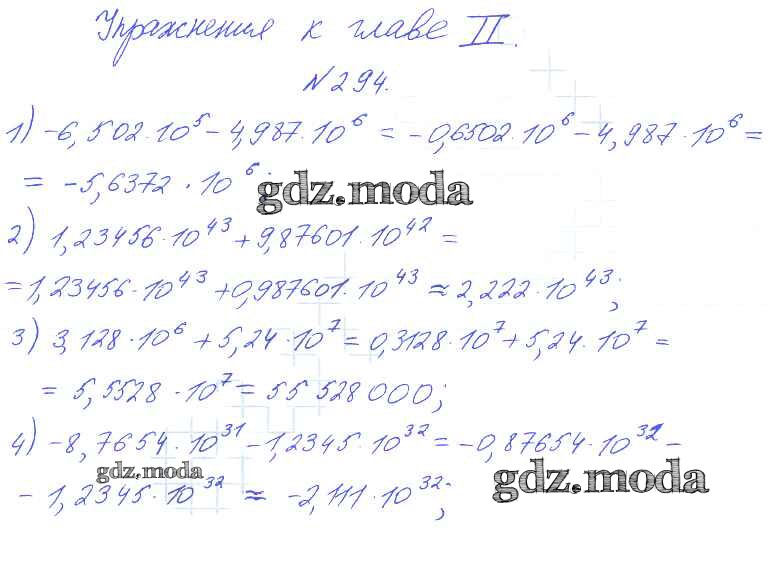 Упражнения к главе II.
№294.
1) -6,502·10⁵ - 4,987·10⁶ = -0,6502·10⁶ - 4,987·10⁶ =
= -5,6372·10⁶.
gdz.moda
2) 1,23456·10⁴³ + 9,87601·10⁴² =
= 1,23456·10⁴³ + 0,987601·10⁴³ ≈ 2,222·10⁴³;
3) 3,128·10⁶ + 5,24·10⁷ = 0,3128·10⁷ + 5,24·10⁷ =
= 5,5528·10⁷ = 55 528 000;
4) -8,7654·10³¹ - 1,2345·10³² = -0,87654·10³² -
gdz.moda
- 1,2345·10³² ≈ -2,111·10³²;
gdz.moda